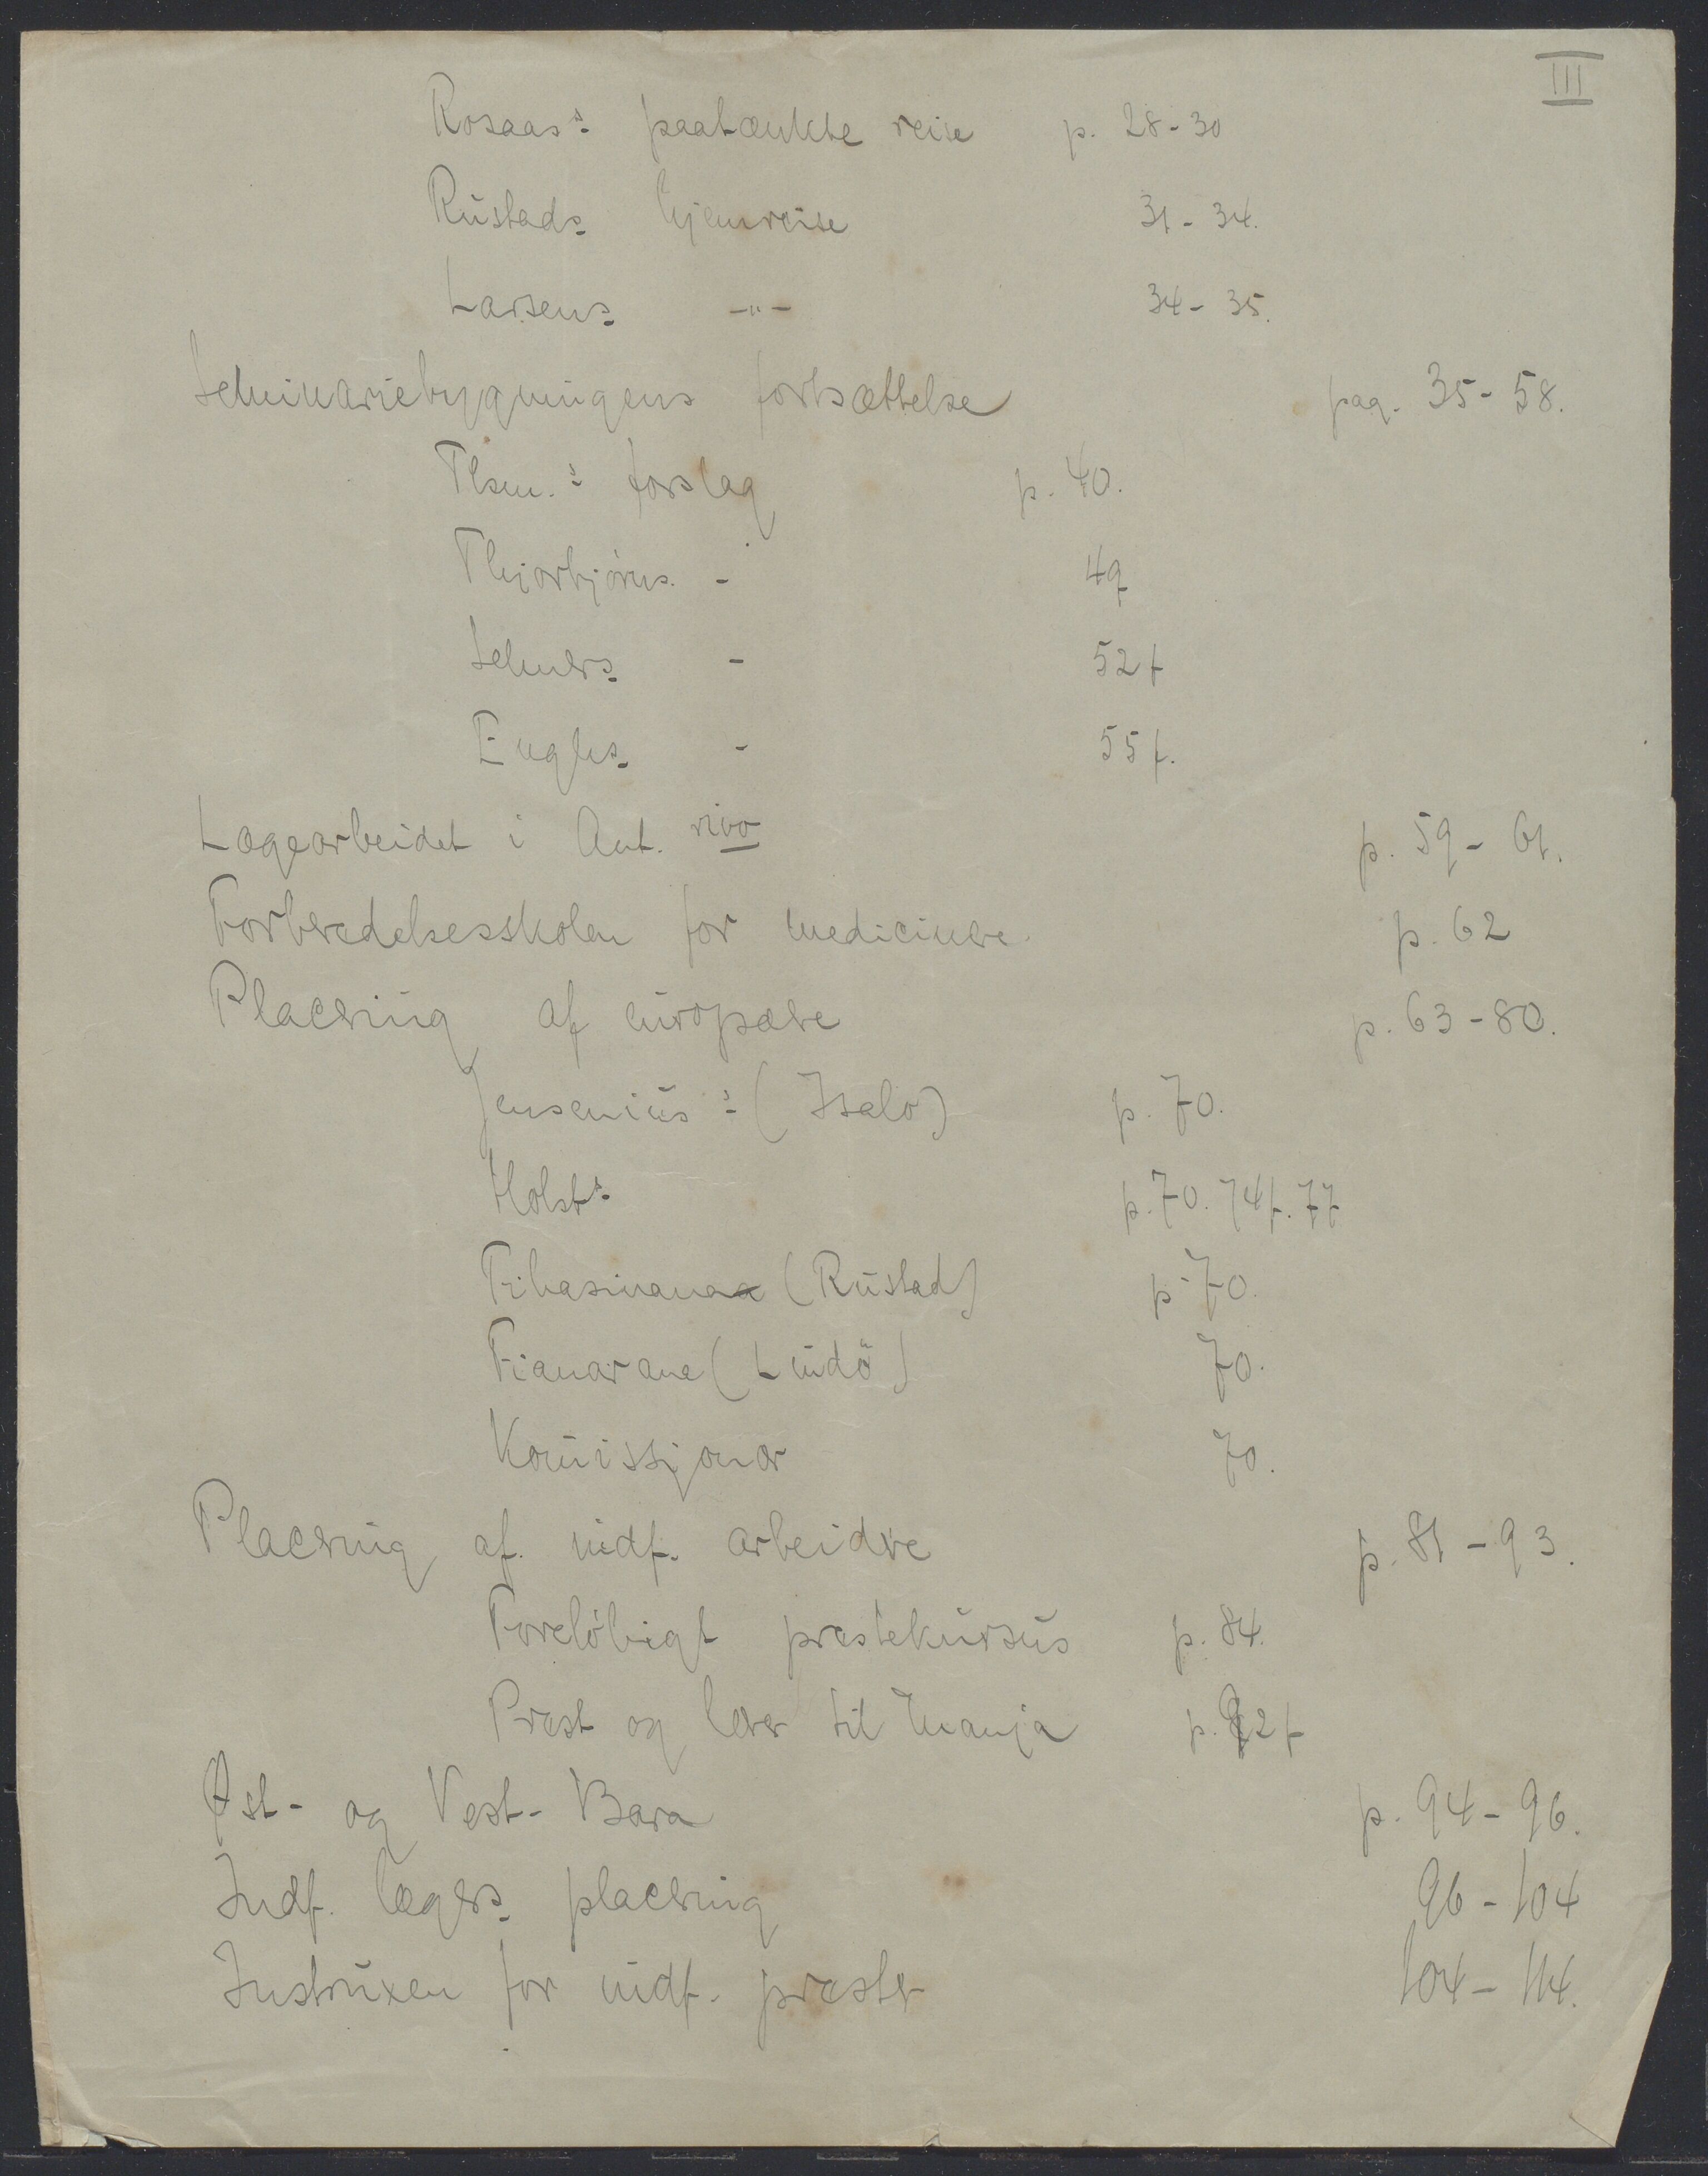 III
Rosaas's paatænkte reise p. 28-30
Rustads hjemreise 31-34.
Larsens -"- 34-35.
Seminariebygningens fortsættelse pag. 35-58.
Thsen.s forslag p. 40.
Thjorbjörns. - 49
Selmers - 52f
Enghs - 55f.
Lægearbeidet i Ant.rivo p. 59-61.
Forberedelsesskolen for medicinere p. 62
Placering af europæere p. 63-80.
Jensenius's (Isalo) p. 70.
Holst's p. 70. 74f. 77
Fihasinana (Rustad) p. 70.
Fianarana (Lindö) 70.
Komissjonær 70.
Placering af. indf. arbeidere p. 81-93.
Foreløbigt prestekursus p. 84.
Prest og lærer til Manja p. 92f
Øst- og Vest-Bara p. 94-96.
Indf. lægers placering 96-104
Instruxen for indf. prester 104-114.